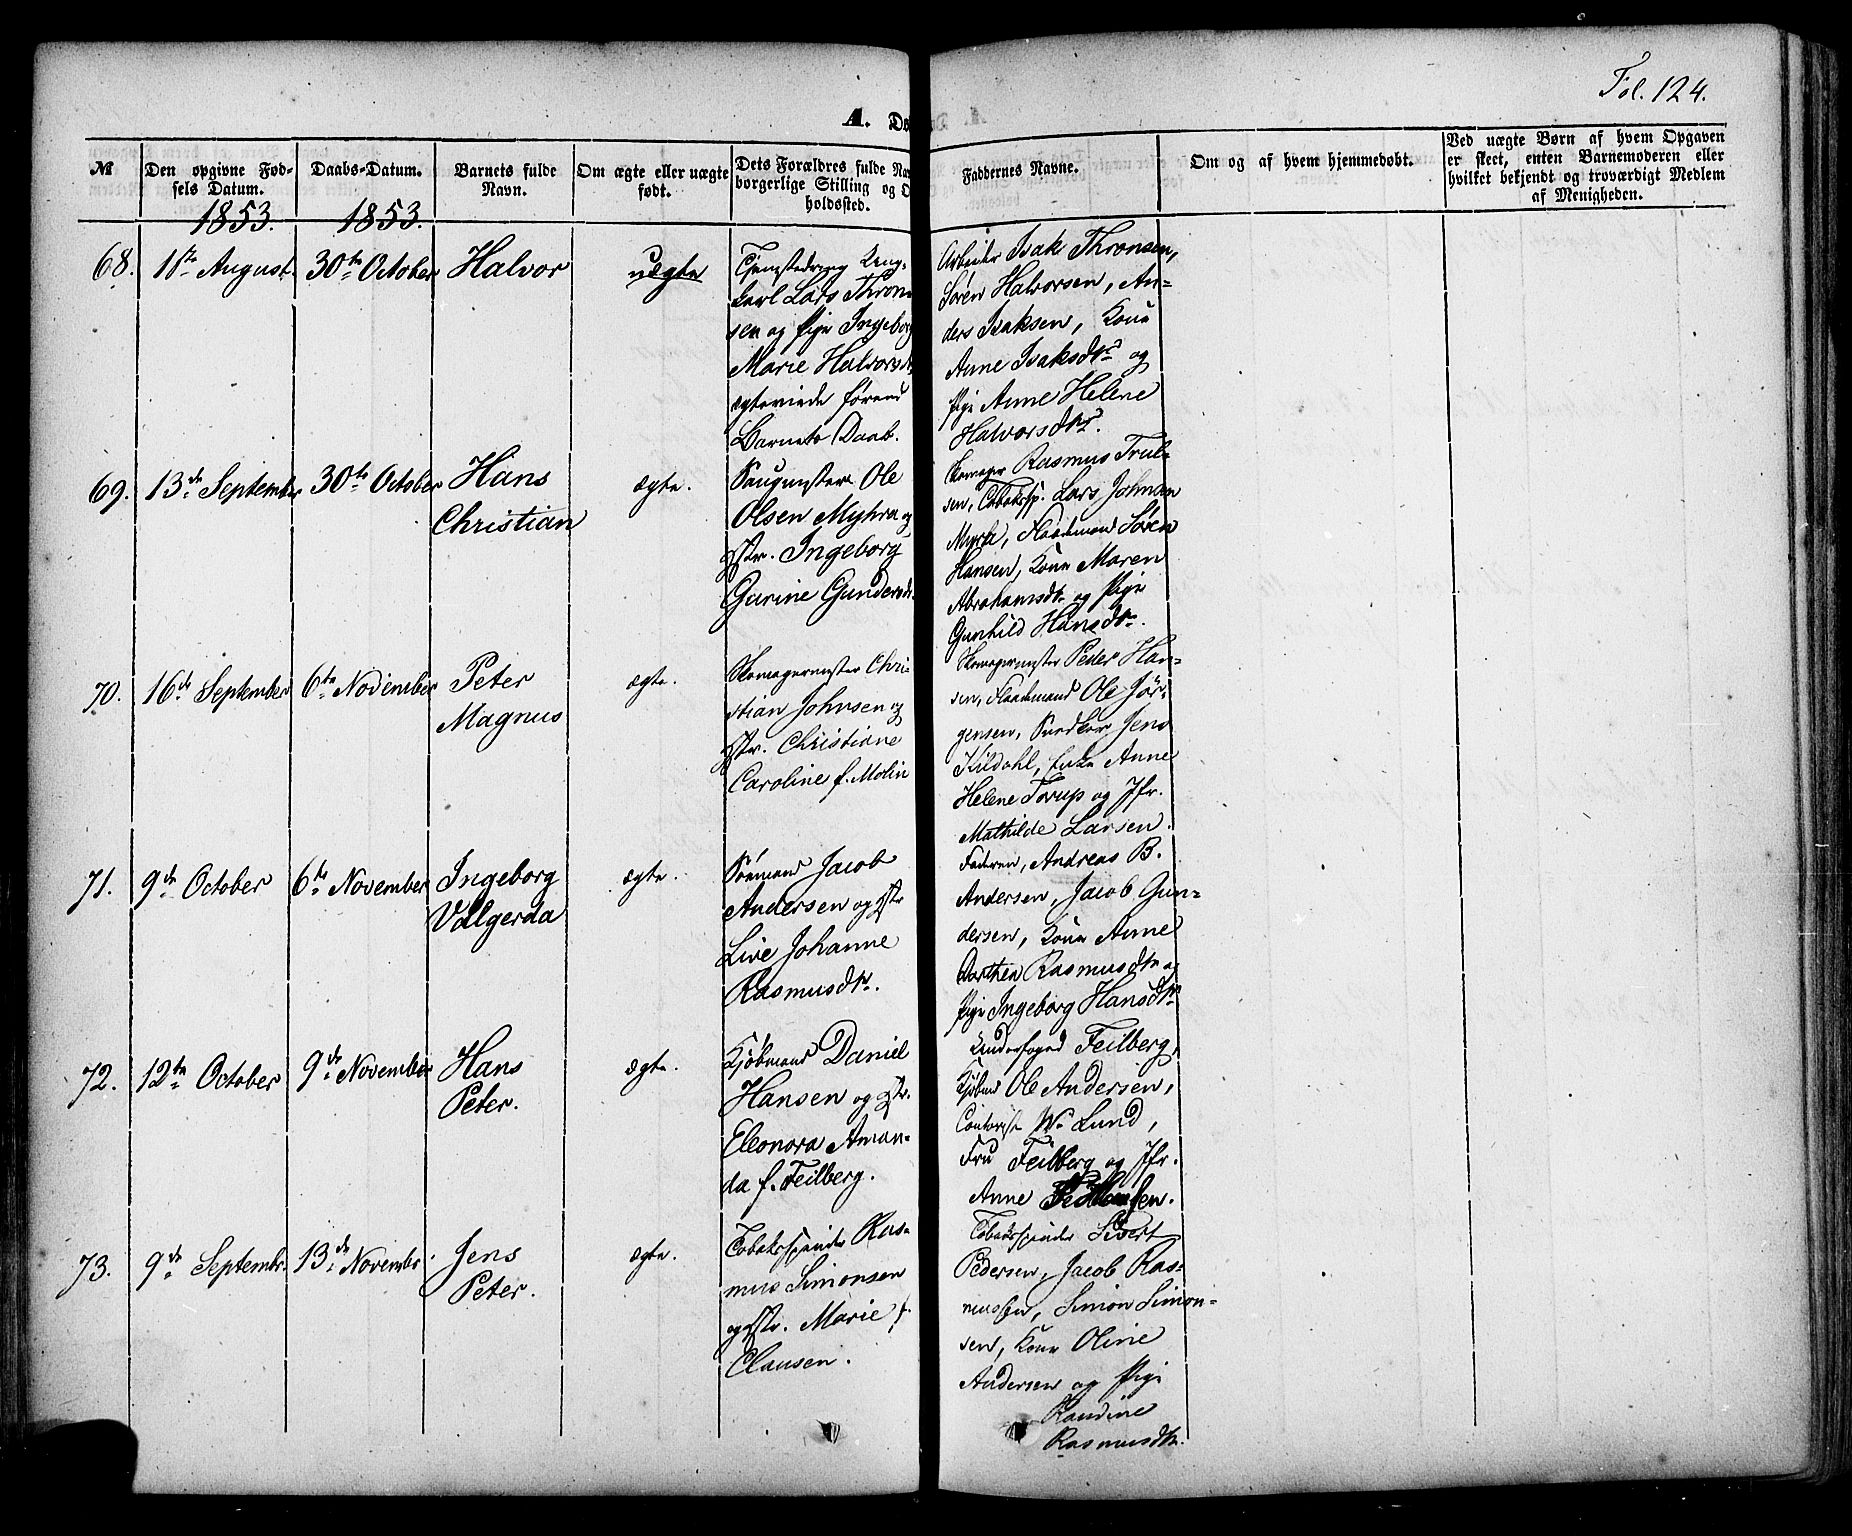 Fol. 124.
A. Dø
№
Den opgivne Fød-
sels Datum.
1853.
Daabs-Datum.
1853.
Barnets fulde
Navn.
Om ægte eller uægte
født.
Dets Forældres fulde Na
borgerlige Stilling og O
holdssted.
Faddernes Navne.
Om og af hvem hjemmedøbt.
Ved uægte Børn af hvem Opgaven
er skeet, enten Barnemoderen eller
hvilket bekjendt og troværdigt Medlem
af Menigheden.
68.
August
30te October
Halvor
uægte
Ung-
karl Lars Thron
sen og Pige Ingeborg
Marie Halvorsd
ægteviede førend
Barnets Daab.
Arbeider Isak Thronsen,
Søren Halvorsen, An-
ders Isaksen, Kone
Anne Isaksdtr og
Pige Anne Helene
Halvorsdtr.
69.
13de September
30te October
Hans
Christian
ægte.
Ole
Olsen Myhra og
Hstr. Ingeborg
Gurine Gundersd
Skomager Rasmus Trul-
sen, Tobaksp. Lars Johnsen
Myrh, Flaademand Søren
Hansen, Kone Maren
Abrahamsdtr og Pige
Gunhild Hansdtr.
70.
16de September
6te November
Peter
Magnus
ægte.
Skomagermester Chri-
stian Johnsen og
Hstr. Christiane
Caroline f. Molin
Skomagermester Peder Han-
sen, Flaademand Ole Jör-
gensen, Snedker Jens
Kildahl, Enke Anne
Helene Torup og Jfr.
Mathilde Larsen.
71.
9de October
6te November
Ingeborg
Valgerda
ægte.
Sømand Jacob
Andersen og Hstr
Live Johanne
Rasmusdtr.
Faderen, Andreas B.
Andersen, Jacob Gun-
dersen, Kone Anne
Dorthea Rasmusdtr og
Pige Ingeborg Hansdtr
72.
12te October
9de November
Hans
Peter.
ægte.
Kjøbmand Daniel
Hansen og Hstr.
Eleonora Aman-
da f. Feilberg.
Underfoged Feilberg,
Kjøbmd Ole Andersen,
Contorist W. Lund,
Fru Feilberg og Jfr.
Anne
73.
9de Septembr.
13de November
Jens
Peter.
ægte.
Tobaksspinder Ras-
mus Simonsen
og Hstr. Marie f.
Clausen.
Tobaksspinder Sivert
Pedersen, Jacob Ras-
mussen, Simon Simon-
sen, Kone Oline
Andersen og Pige
Randine
Rasmusdtr.